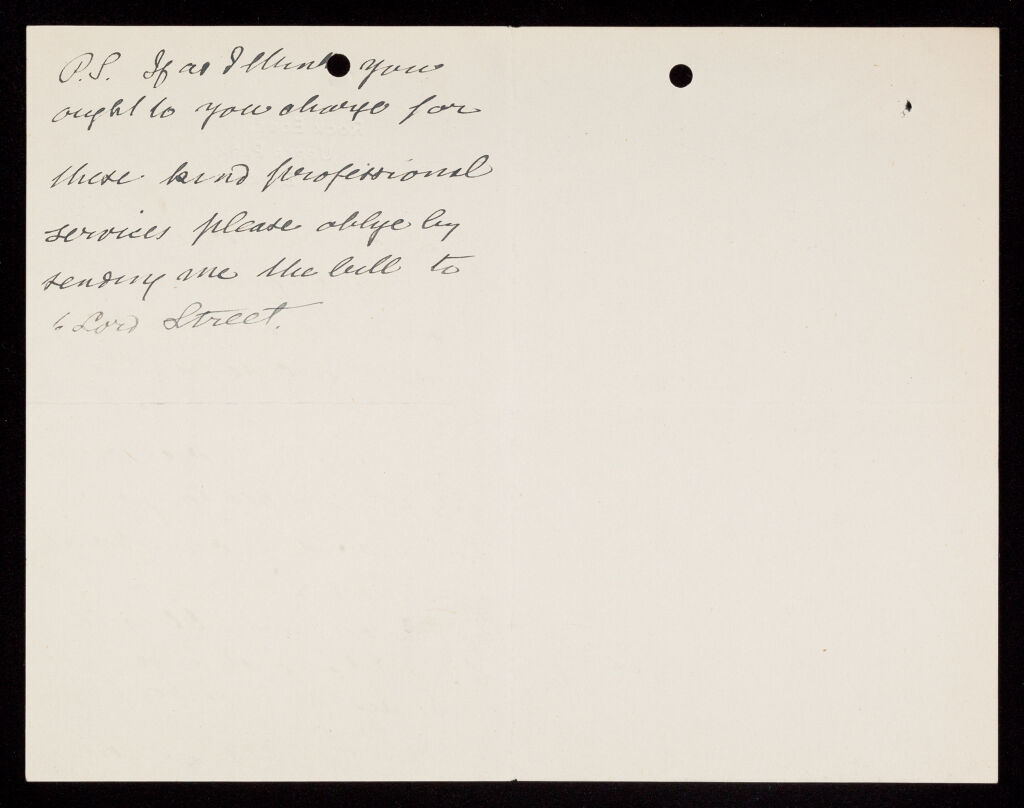 P.S. If as I think you
ought to you charge for
these kind professional
services please oblige by
sending me the bill to
6 Lord Street.